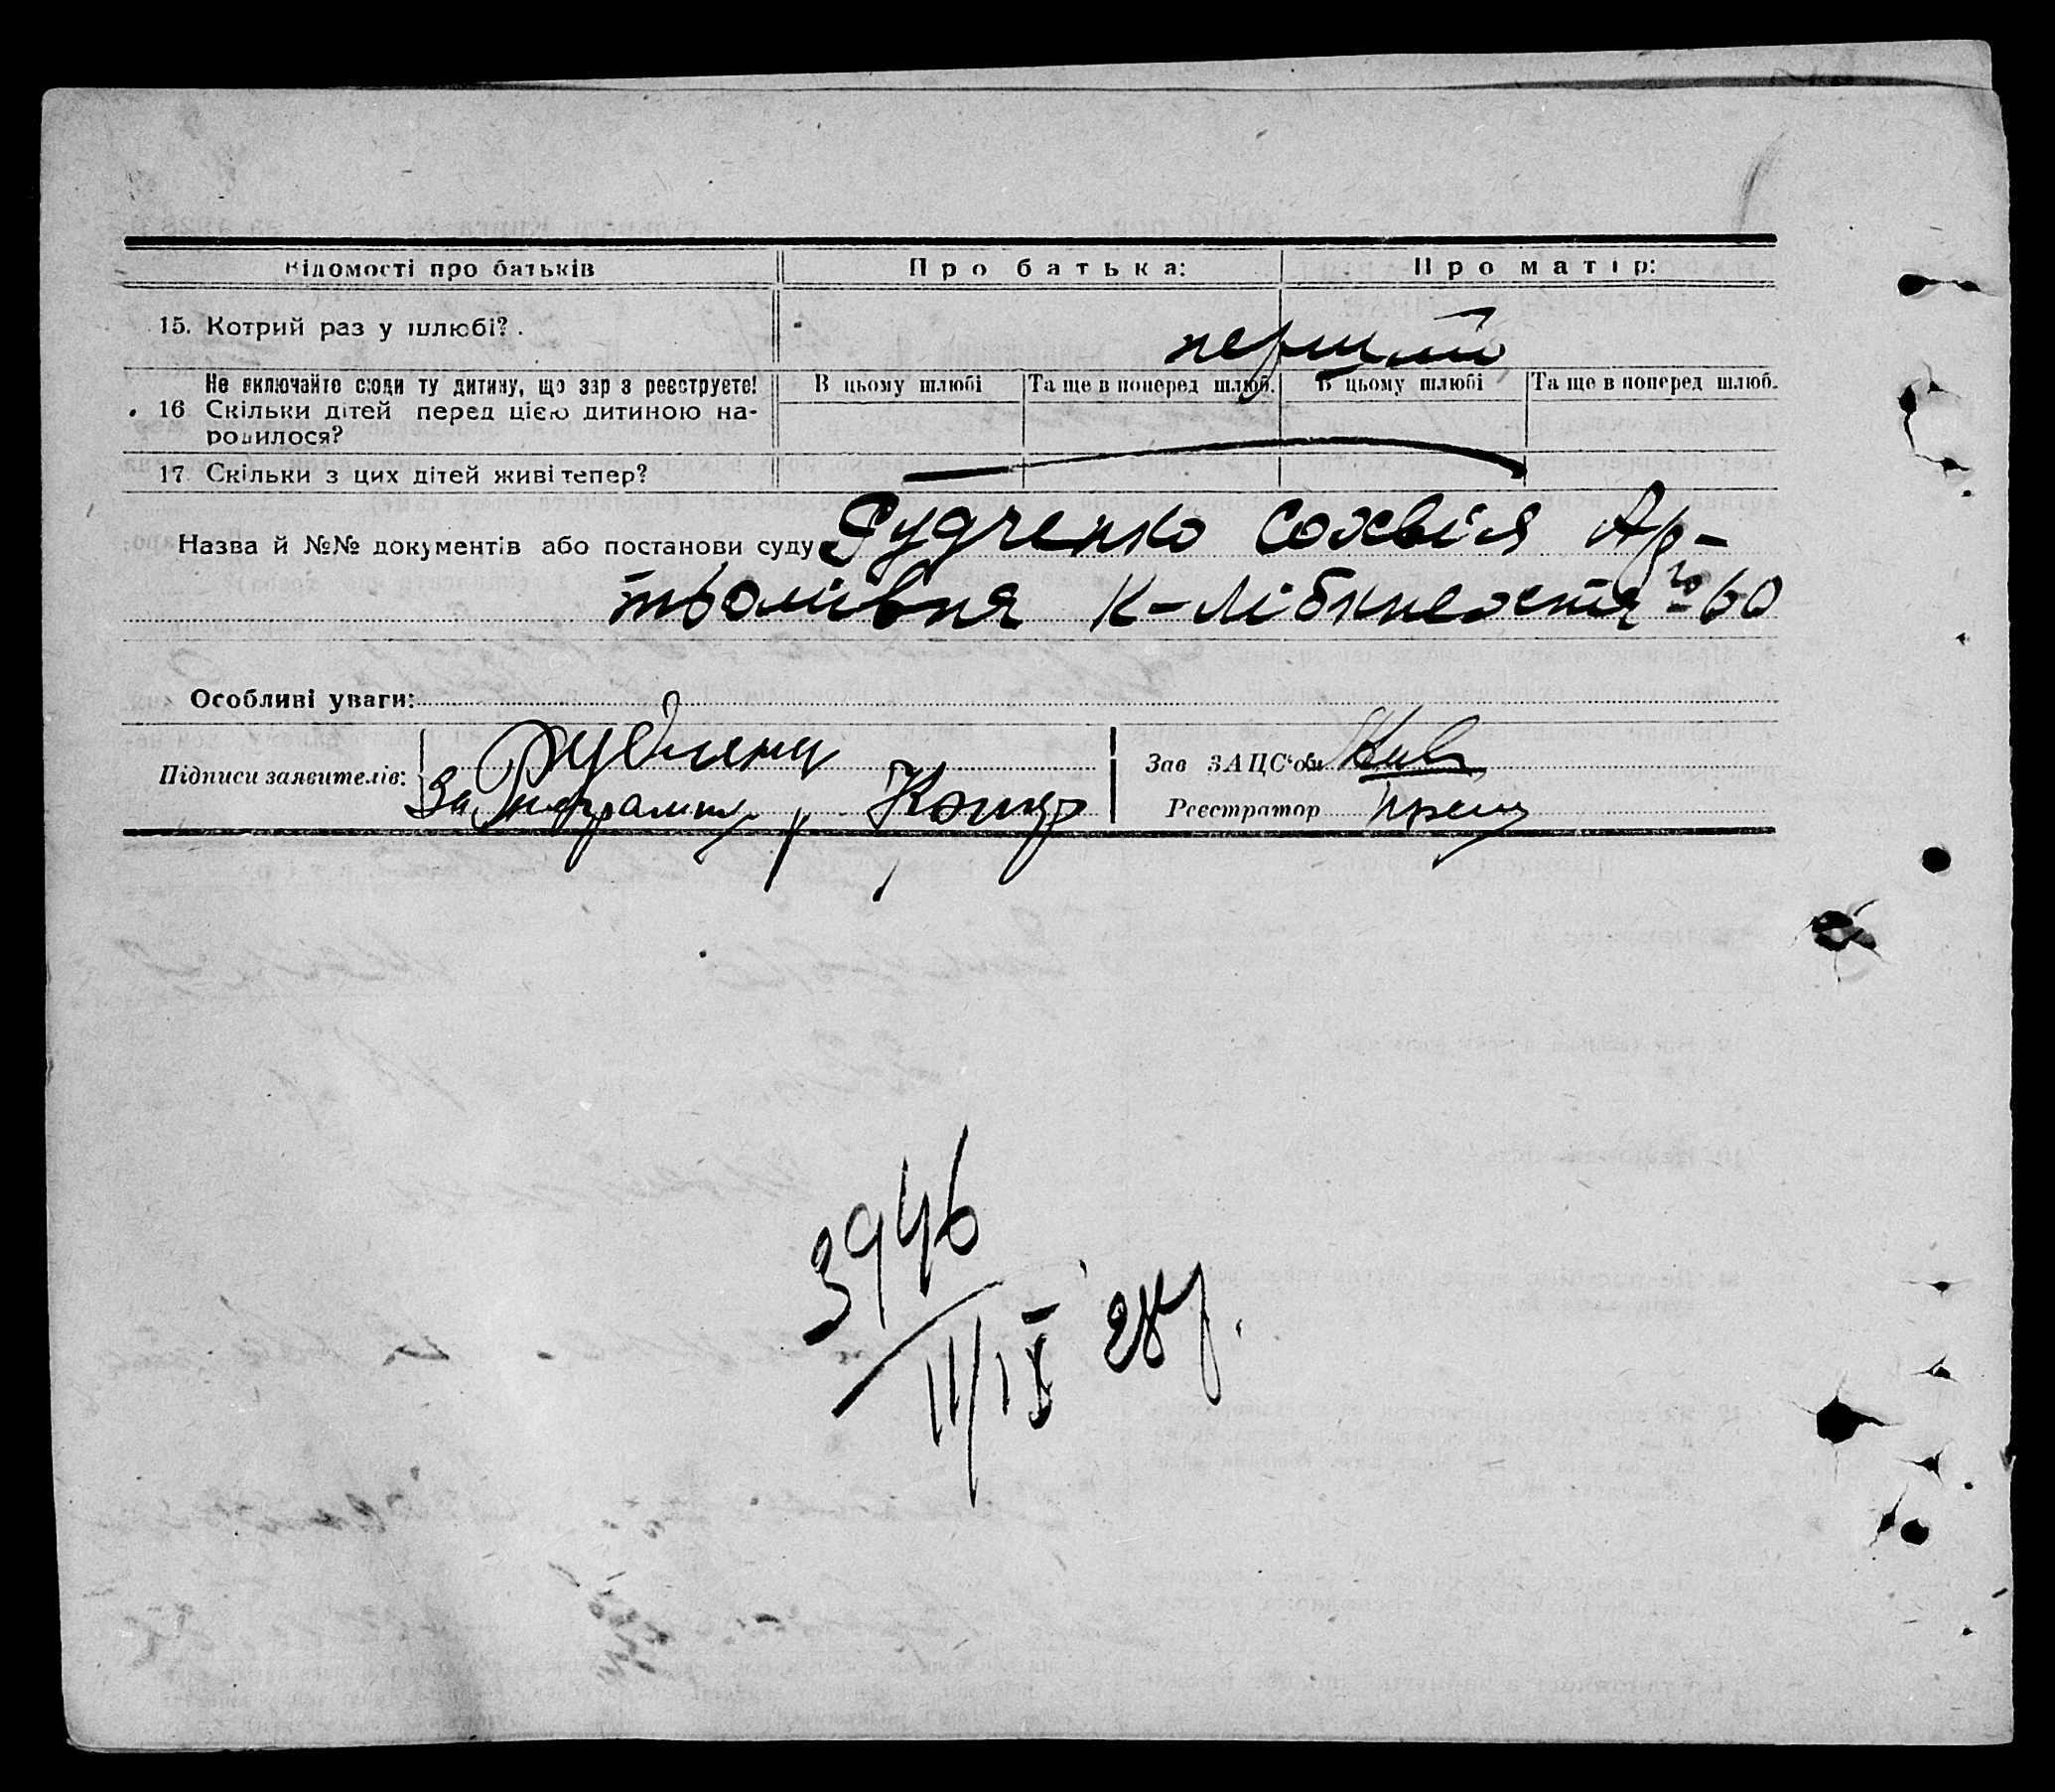 Відомості про батьків Про батька: Про матір:
15. Котрий раз у шлюбі? перший
Не включайте сюди ту дитину, що зараз реєструєте! В цьому шлюбі Та ще в поперед шлюб. В цьому шлюбі Та ще в поперед шлюб.
16 Скільки дітей перед цією дитиною на-
родилося?
17. Скільки з цих дітей живі тепер?
Назва й №№ документів або постанови суду Рудченко Сохвія Ар-
тьомівня К-Лібкнехтя № 60
Особливі уваги:
Підписи заявителів:
За
Зав ЗАЦС'ом
Реєстратор
3946
11/IX 28 р.